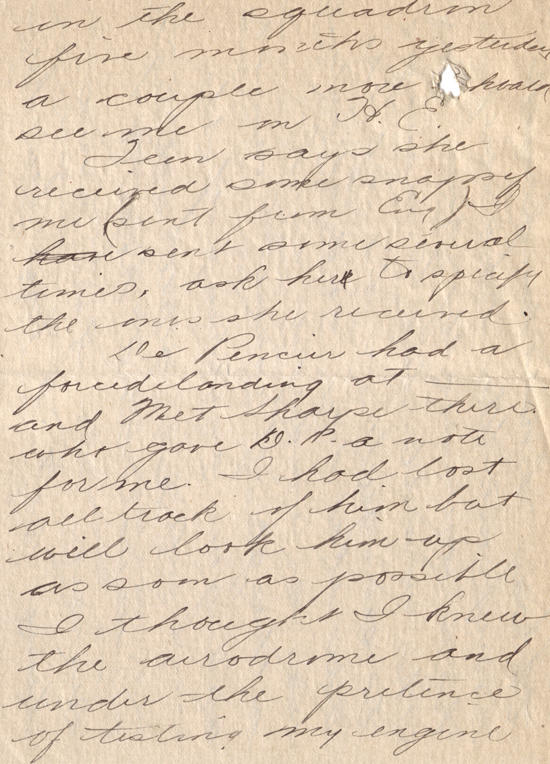 in the squadron
five months yesterday
a couple more should
see me in H. E.
Teen says she
received some snaps of
me (sent from Eng) I
have sent some several
times, ask her to specify
the ones she received.
De Pencier had a
forcedelanding at ———
and Met Sharpe there
who gave D. P. a note
for me. I had lost
all track of him but
will look him up
as soon as possible
I thought I knew
the aerodrome and
under the pretence
of testing my engine